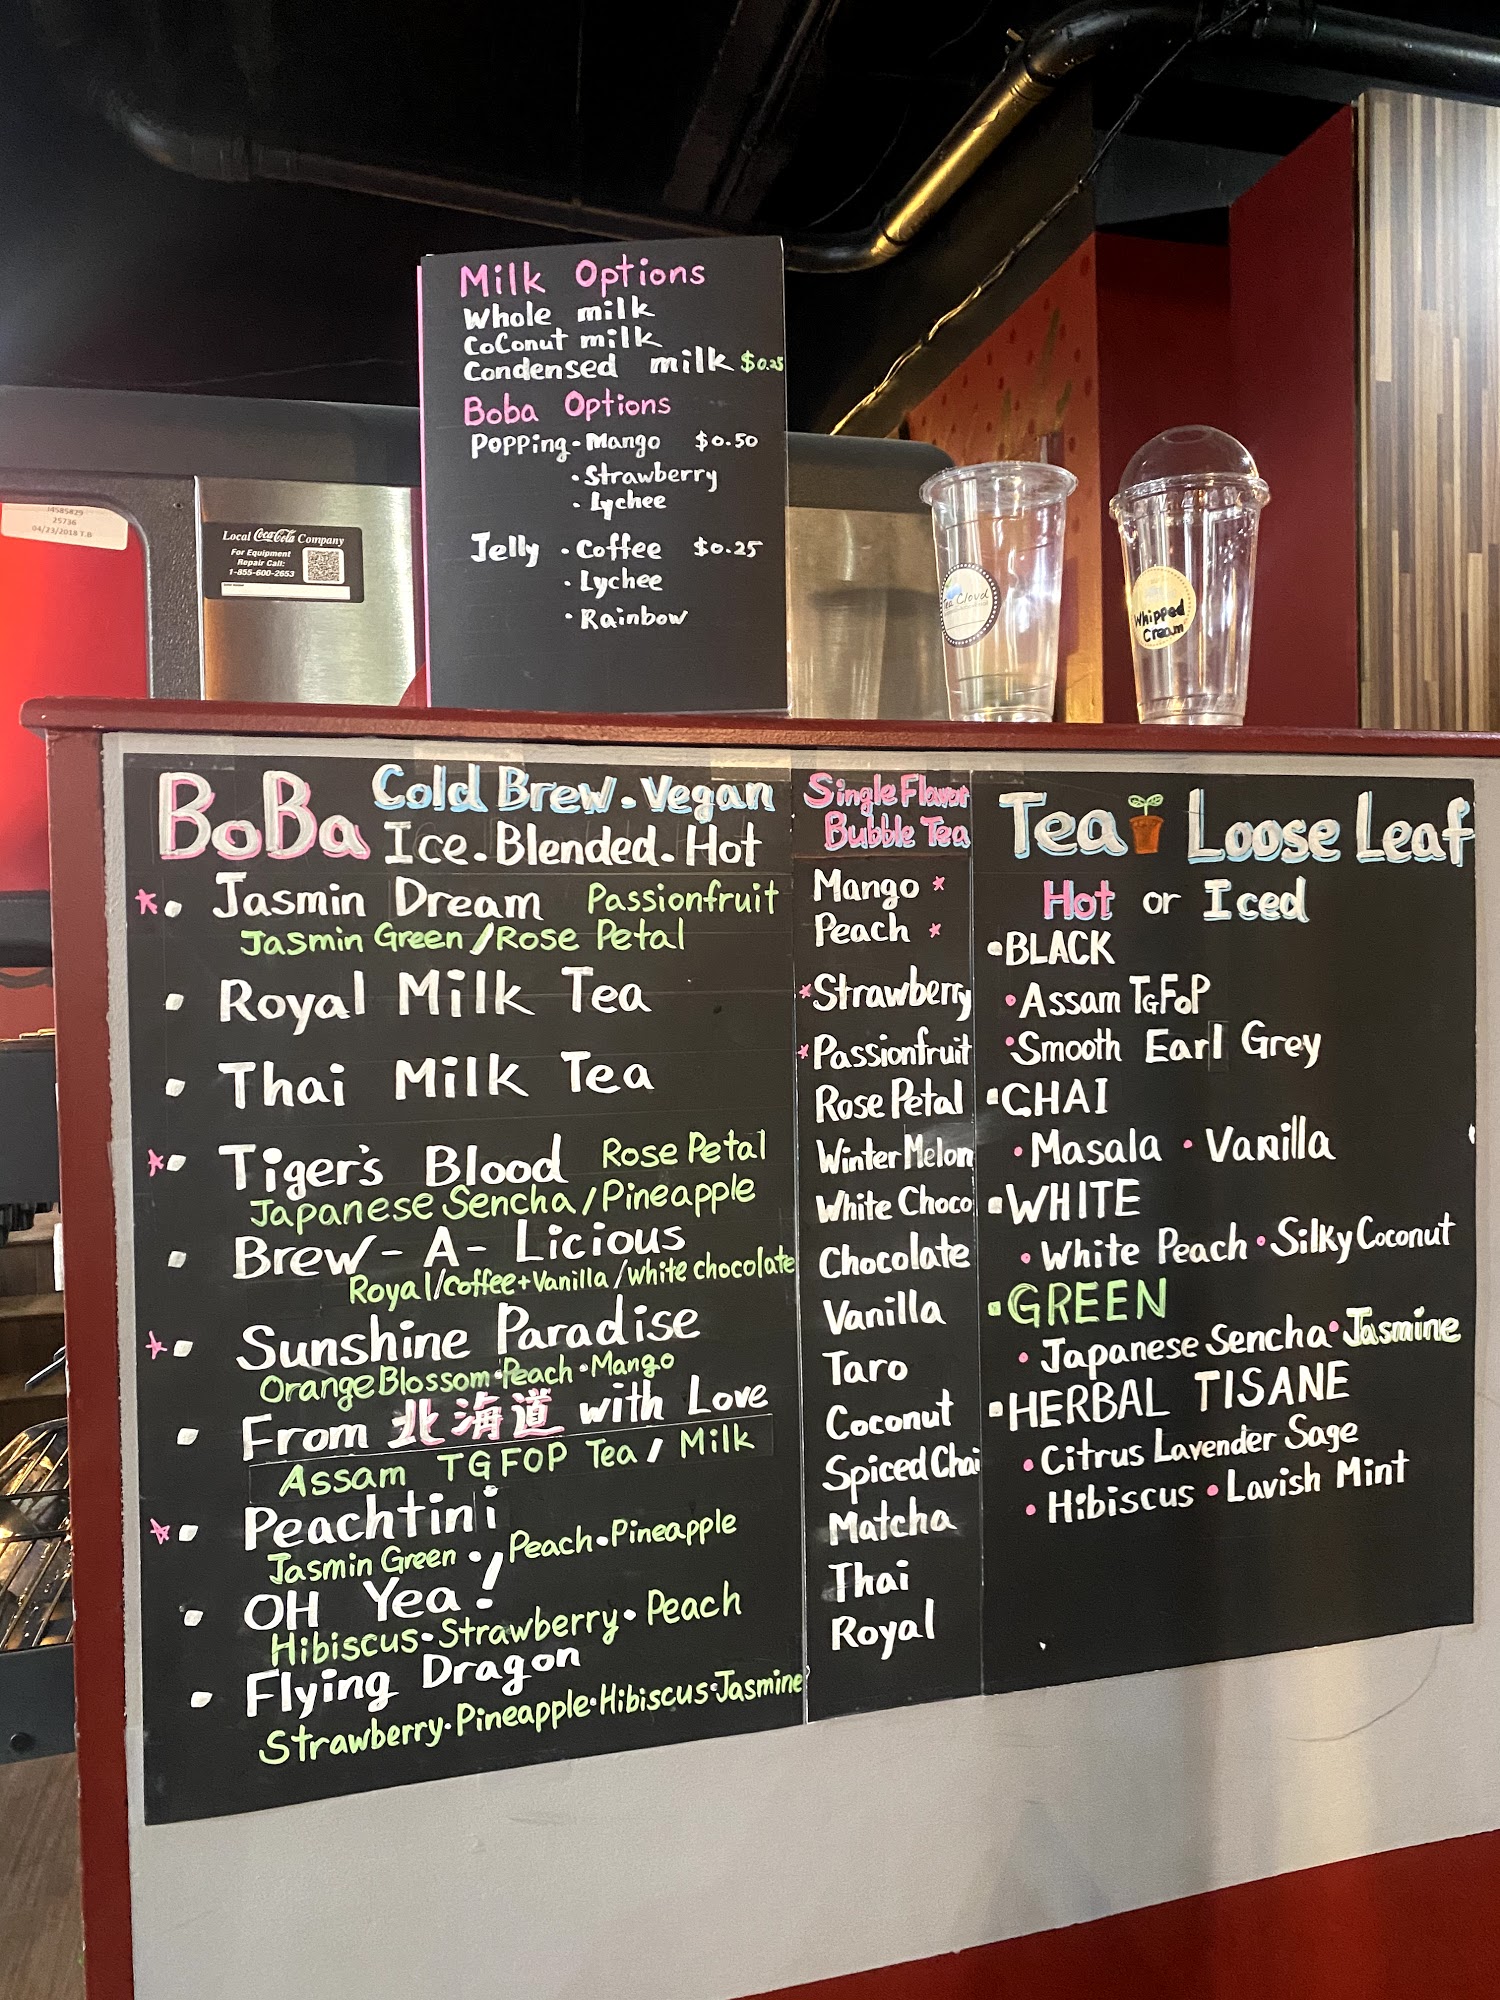 Milk Options
Whole milk
CoConut milk
Condensed milk $0.25
Boba Options
Popping • Mango $0.50
• Strawberry
• Lychee
Jelly • Coffee $0.25
• Lychee
• Rainbow
J4585829
25736
04/23/2018 T.B
Local Coca-Cola Company
For Equipment
Repair Call:
1-855-600-2653
Tea Cloud
Whipped
Cream
BoBa Cold Brew • Vegan
Ice • Blended • Hot
* • Jasmin Dream Passionfruit
Jasmin Green / Rose Petal
• Royal Milk Tea
• Thai Milk Tea
* • Tiger's Blood Rose Petal
Japanese Sencha / Pineapple
• Brew - A - Licious
Royal / Coffee + Vanilla / White chocolate
* • Sunshine Paradise
Orange Blossom • Peach • Mango
• From 北海道 with Love
Assam TGFOP Tea / Milk
* • Peachtini
Jasmin Green • Peach • Pineapple
• OH Yea!
Hibiscus • Strawberry • Peach
• Flying Dragon
Strawberry • Pineapple • Hibiscus • Jasmine
Single Flavor
Bubble Tea
Mango *
Peach *
* Strawberry
* Passionfruit
Rose Petal
Winter Melon
White Choco
Chocolate
Vanilla
Taro
Coconut
Spiced Chai
Matcha
Thai
Royal
Tea Loose Leaf
Hot or Iced
• BLACK
• Assam TGFOP
• Smooth Earl Grey
• CHAI
• Masala • Vanilla
• WHITE
• White Peach • Silky Coconut
• GREEN
• Japanese Sencha • Jasmine
• HERBAL TISANE
• Citrus Lavender Sage
• Hibiscus • Lavish Mint